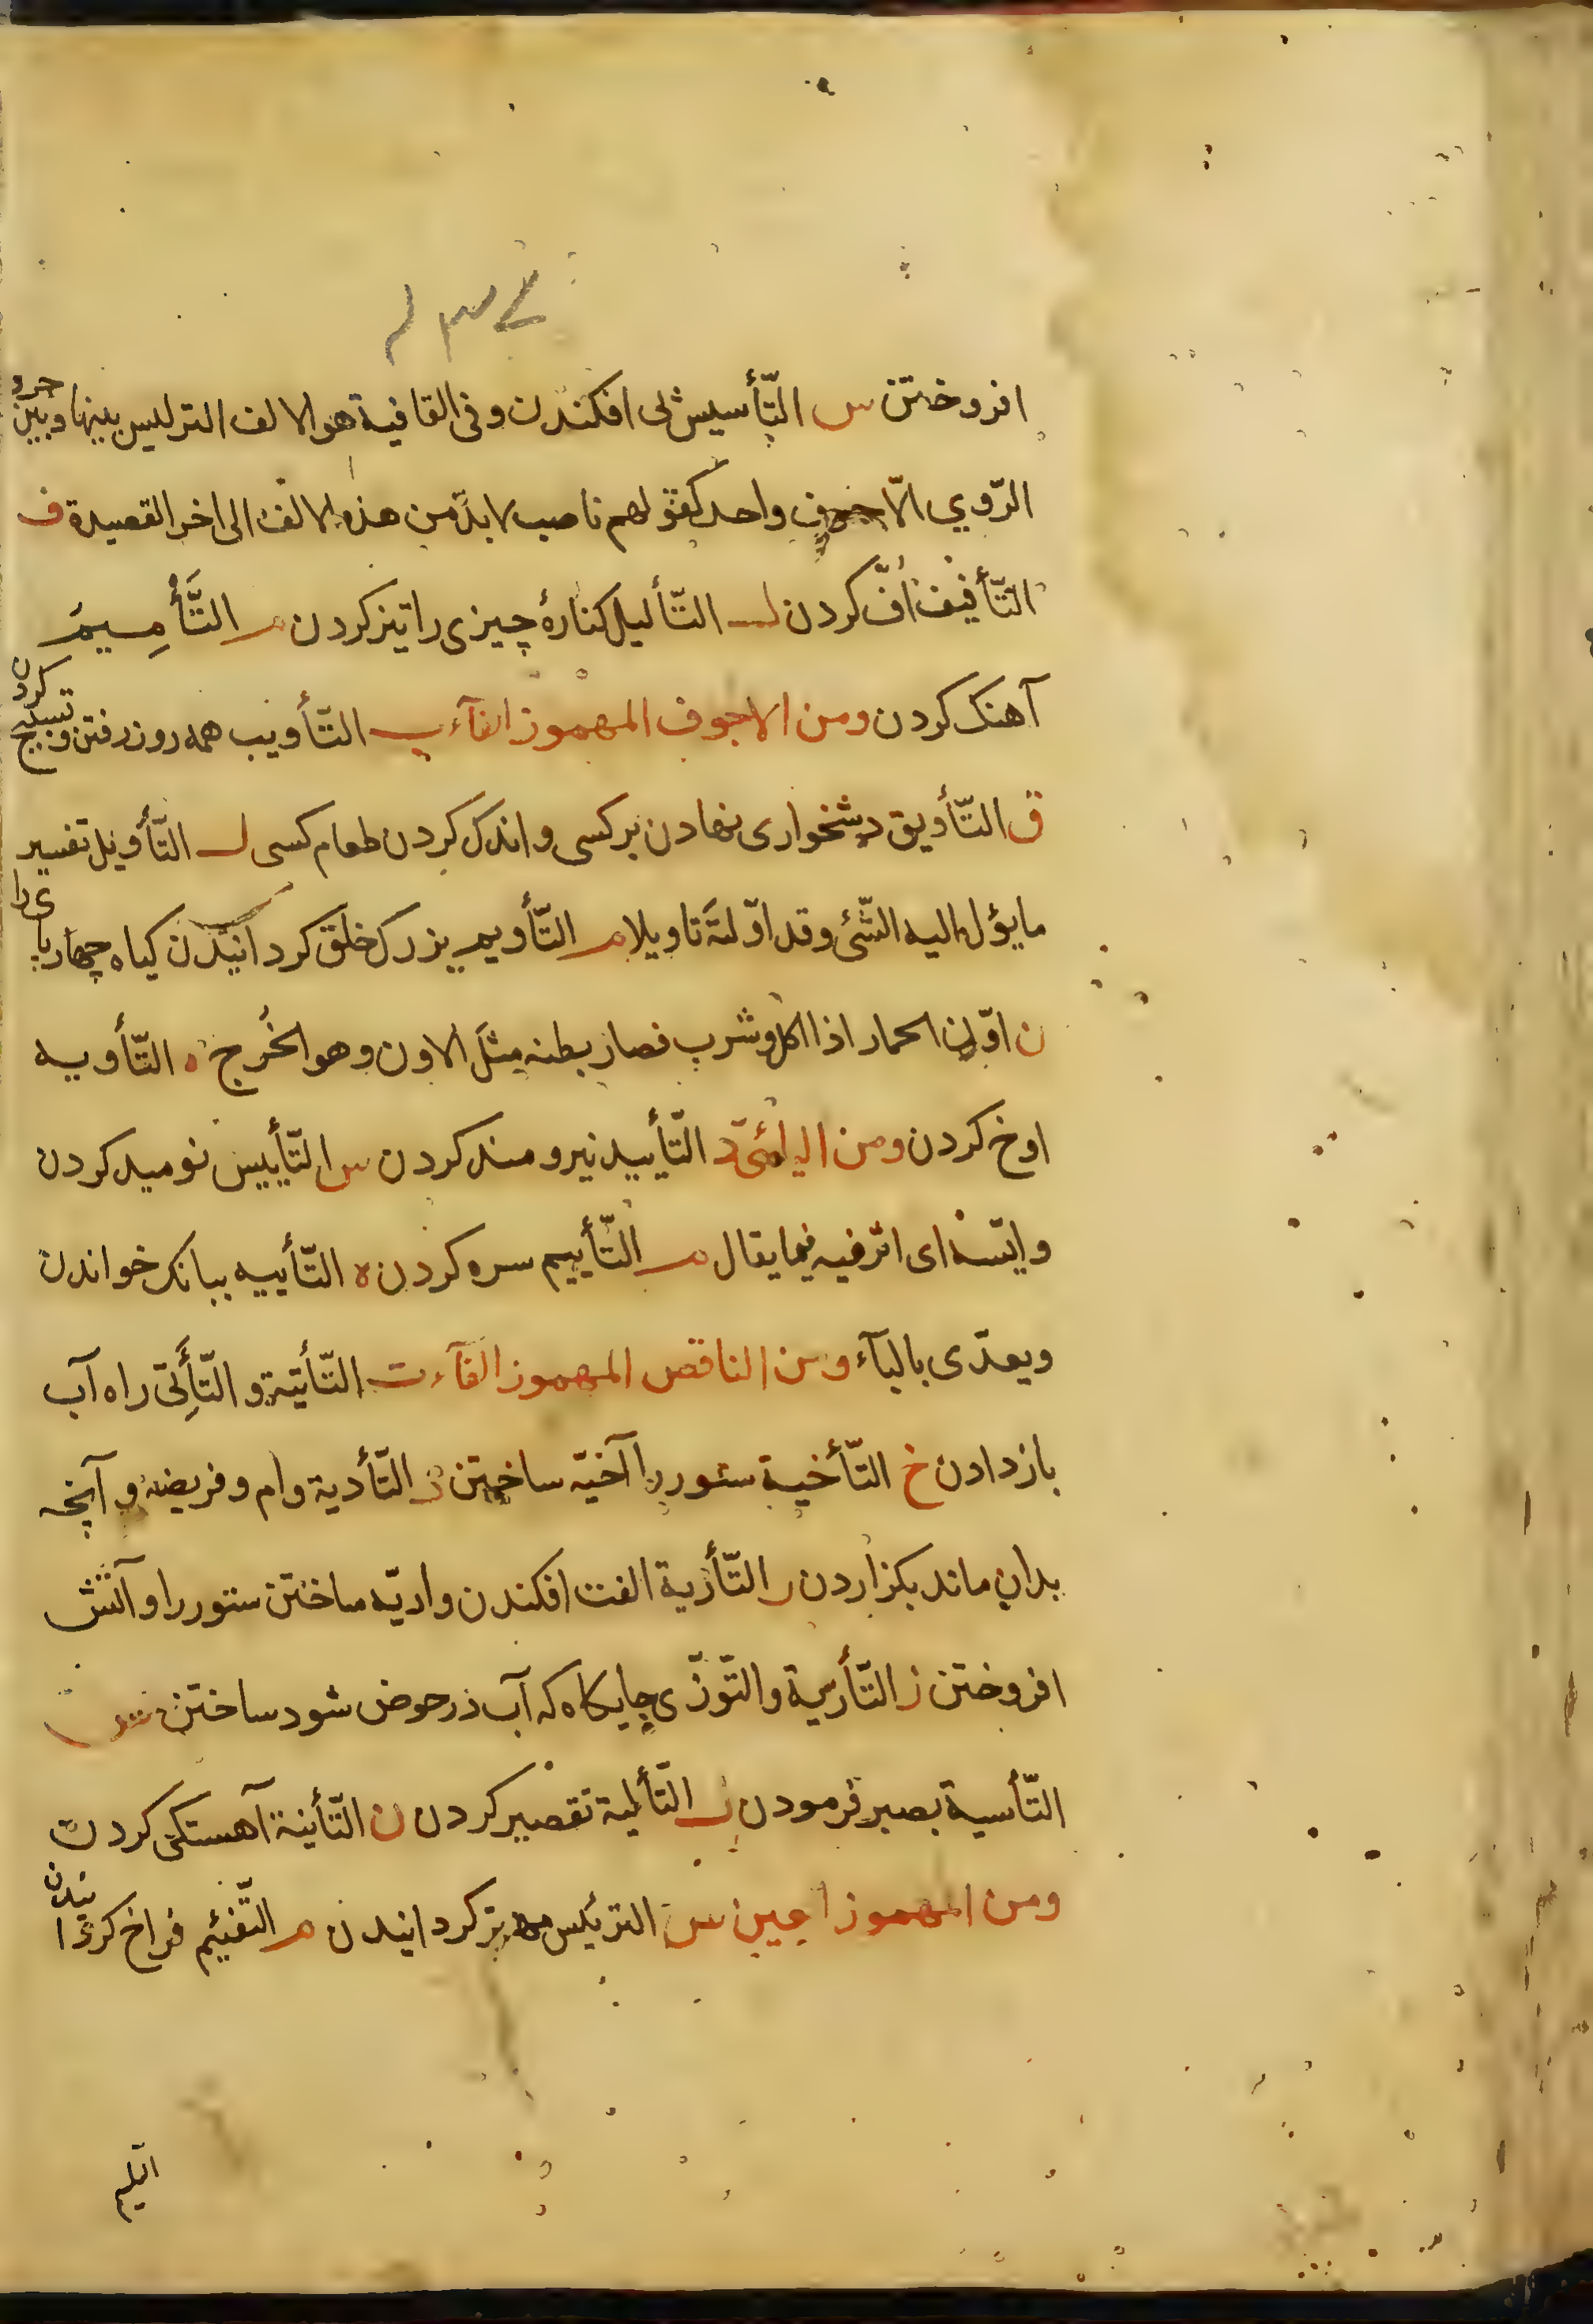 افروختن س التّأسیس پی افکندن و فی القافیة هو الالف التی لیس بینها و بین حرف
الرّوی الّا حرف واحد کقولهم ناصب لا بدّ من هذه الالف الی اخر القصیدة ف
التّأفیف افّ کردن ل التّألیل کنارهٔ چیزی را تیز کردن م التَّأمِیم
آهنک کردن ومن الاجوف المهموز الفآء ب التّأویب همه روز رفتن و تسبیح کردن
ق التّأویق دشخواری نهادن بر کسی و اندک کردن طعام کسی ل التّأویل تفسیر
ما یؤل الیه الشّئ وقد اوّلتهَ تاویلا م التّأویم بزرک خلق کردانیدن کیاه چهارپای را
ن اوّن الحمار اذا اکل وشرب فصار بطنه مثل الاون وهو الخُرج ه التّأویه
اوخ کردن ومن الیائیّ د التّأیید نیرومند کردن س التّأییس نومید کردن
وایّسه ای اثر فیه فیما یقال م التّأییم سره کردن ه التّأییه ببانک خواندن
ویعدّی بالبآء ومن الناقص المهموز الفآء ت التّأتیة و التّأتّی راه آب
باز دادن خ التّأخیة ستور را آخیّه ساختن د التّأدیة وام و فریضه و آنچه
بدان ماند بکزاردن ر التّأریة الفت افکندن و اریّه ساختن ستور را و آتش
افروختن ز التّأزیة والتّوزّی جایکاه که آب در حوض شود ساختن س
التّأسیة بصبر فرمودن ل التّألیة تقصیر کردن ن التّأنیة آهستکی کردن
ومن المهموز العین س الترئیس مهتر کردانیدن م التّفئیم فراخ کردانیدن